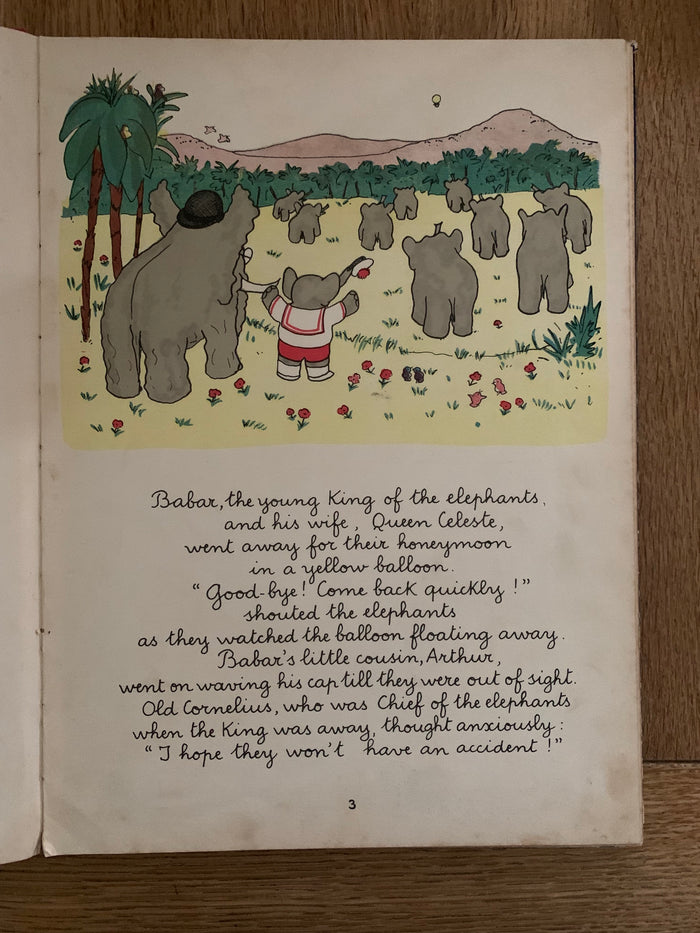 Babar, the young King of the elephants,
and his wife, Queen Celeste,
went away for their honeymoon
in a yellow balloon.
"Good-bye! Come back quickly!"
shouted the elephants
as they watched the balloon floating away.
Babar's little cousin, Arthur,
went on waving his cap till they were out of sight.
Old Cornelius, who was Chief of the elephants
when the King was away, thought anxiously:
"I hope they won't have an accident!"
3